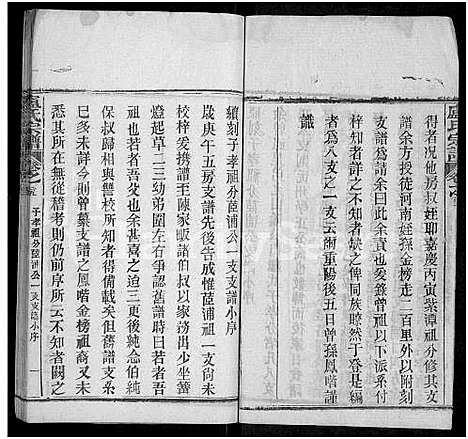 得者況他房叔姪聊嘉慶丙寅紫潭祖分其支
譜余方授徒河南姪孫金榜走二百里外以附刻
支譜為請余曰此盛舉也曾祖以下派系付
梓知者詳之不知者缺之俾同族瞭然于登是編
者為八支之一支云爾重陽後五日曾孫鳳喈謹
識
盧氏宗譜
續刻子孝祖分苣浦公一支支譜小序
歲庚午五房支譜先後告成惟苣浦祖一支尚未
校梓爰携譜至陳家畈諸伯叔以家不少坐蓐
燈起草二三幼弟圍左右爭認舊譜時曰若者吾
祖也若者吾父也余甚喜之迨三更後純念伯純
保叔歸相與讐校所知者得備載矣但舊譜支系
巳多未詳今則曾纂支譜之鳳喈金榜祖裔又未
悉其所在無從稽考則仍前序所云不知者闕之
盧氏宗譜
子孝祖分苣浦公一支支譜小序
一